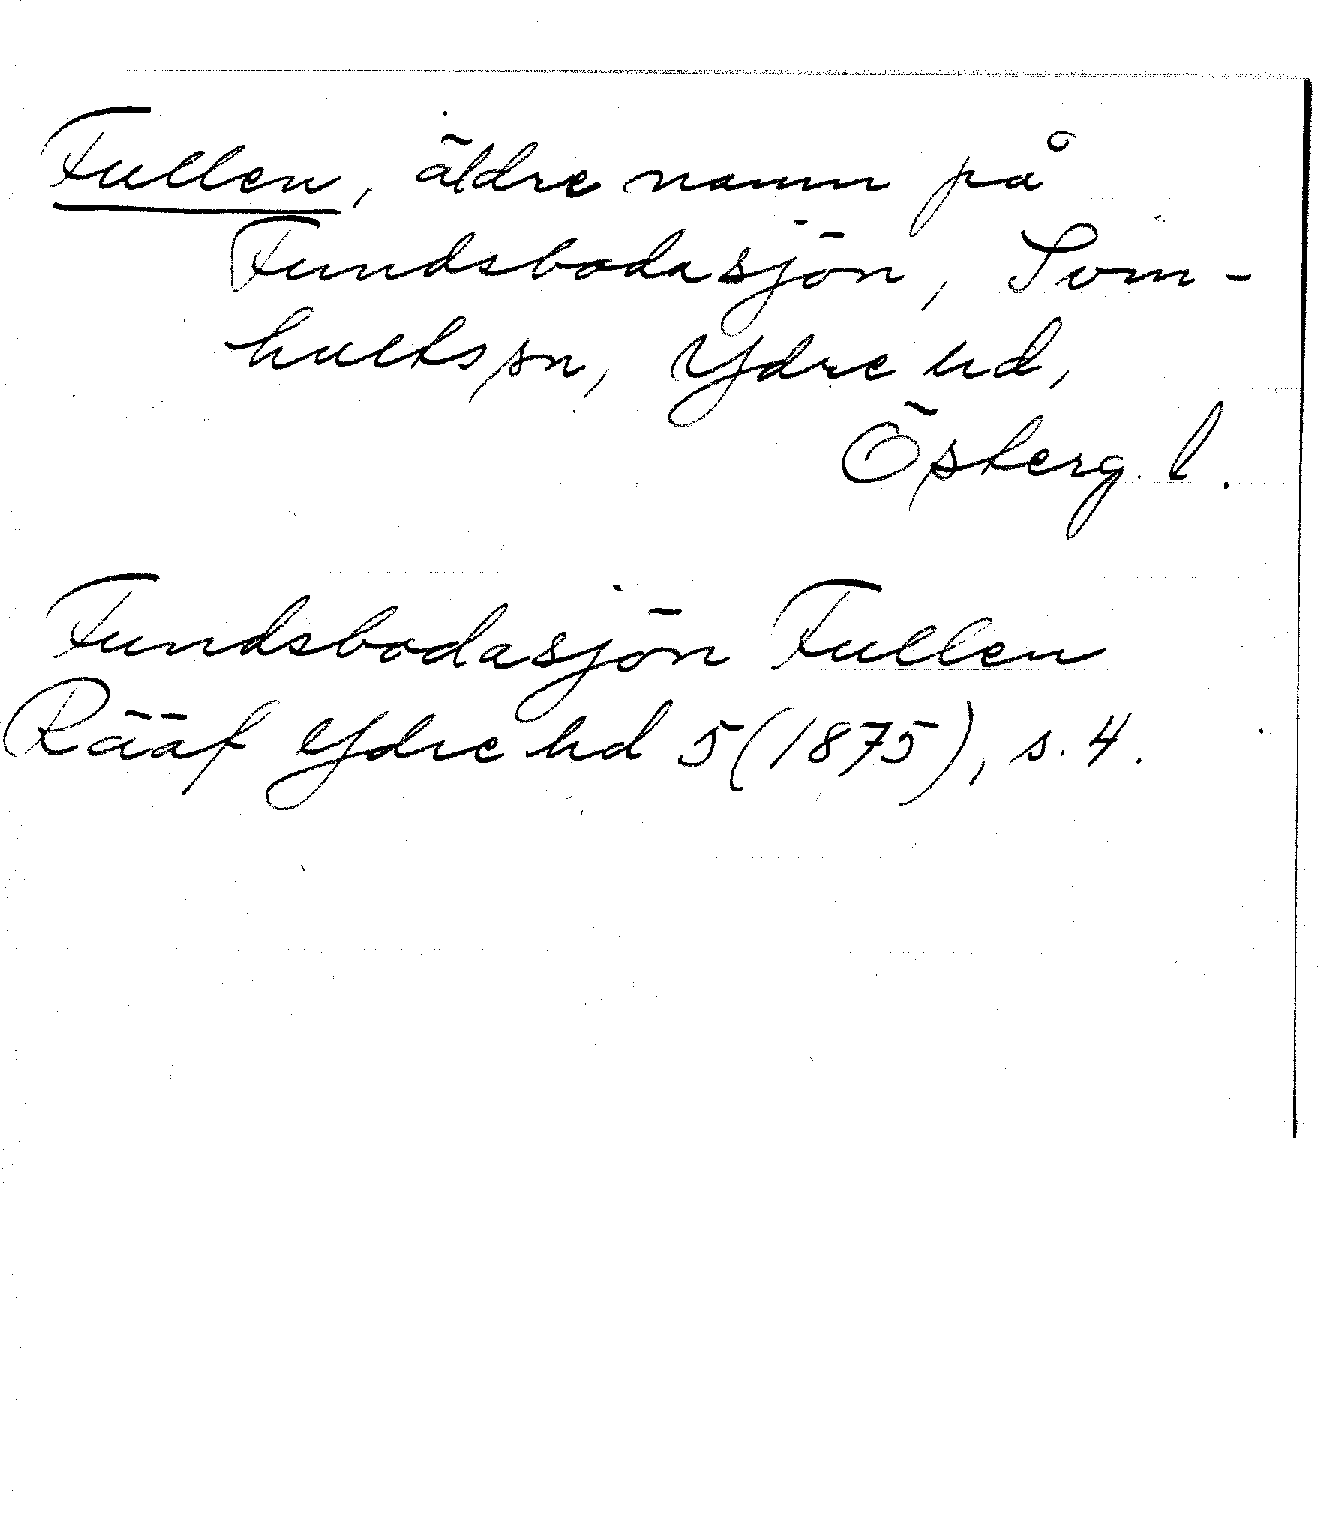 Fullen, äldre namn på
Fundsbodasjön, Svin-
hults sn, Ydre hd,
Österg. l.
Fundsbodasjön Fullen
Rääf Ydre hd 5 (1875), s. 4.